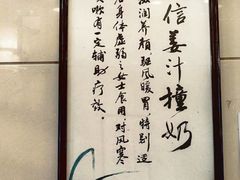 信姜汁撞奶
滋润养颜,驱风暖胃特别适
后身体虚弱之女士食用,对风寒
咳有一定辅助疗效。